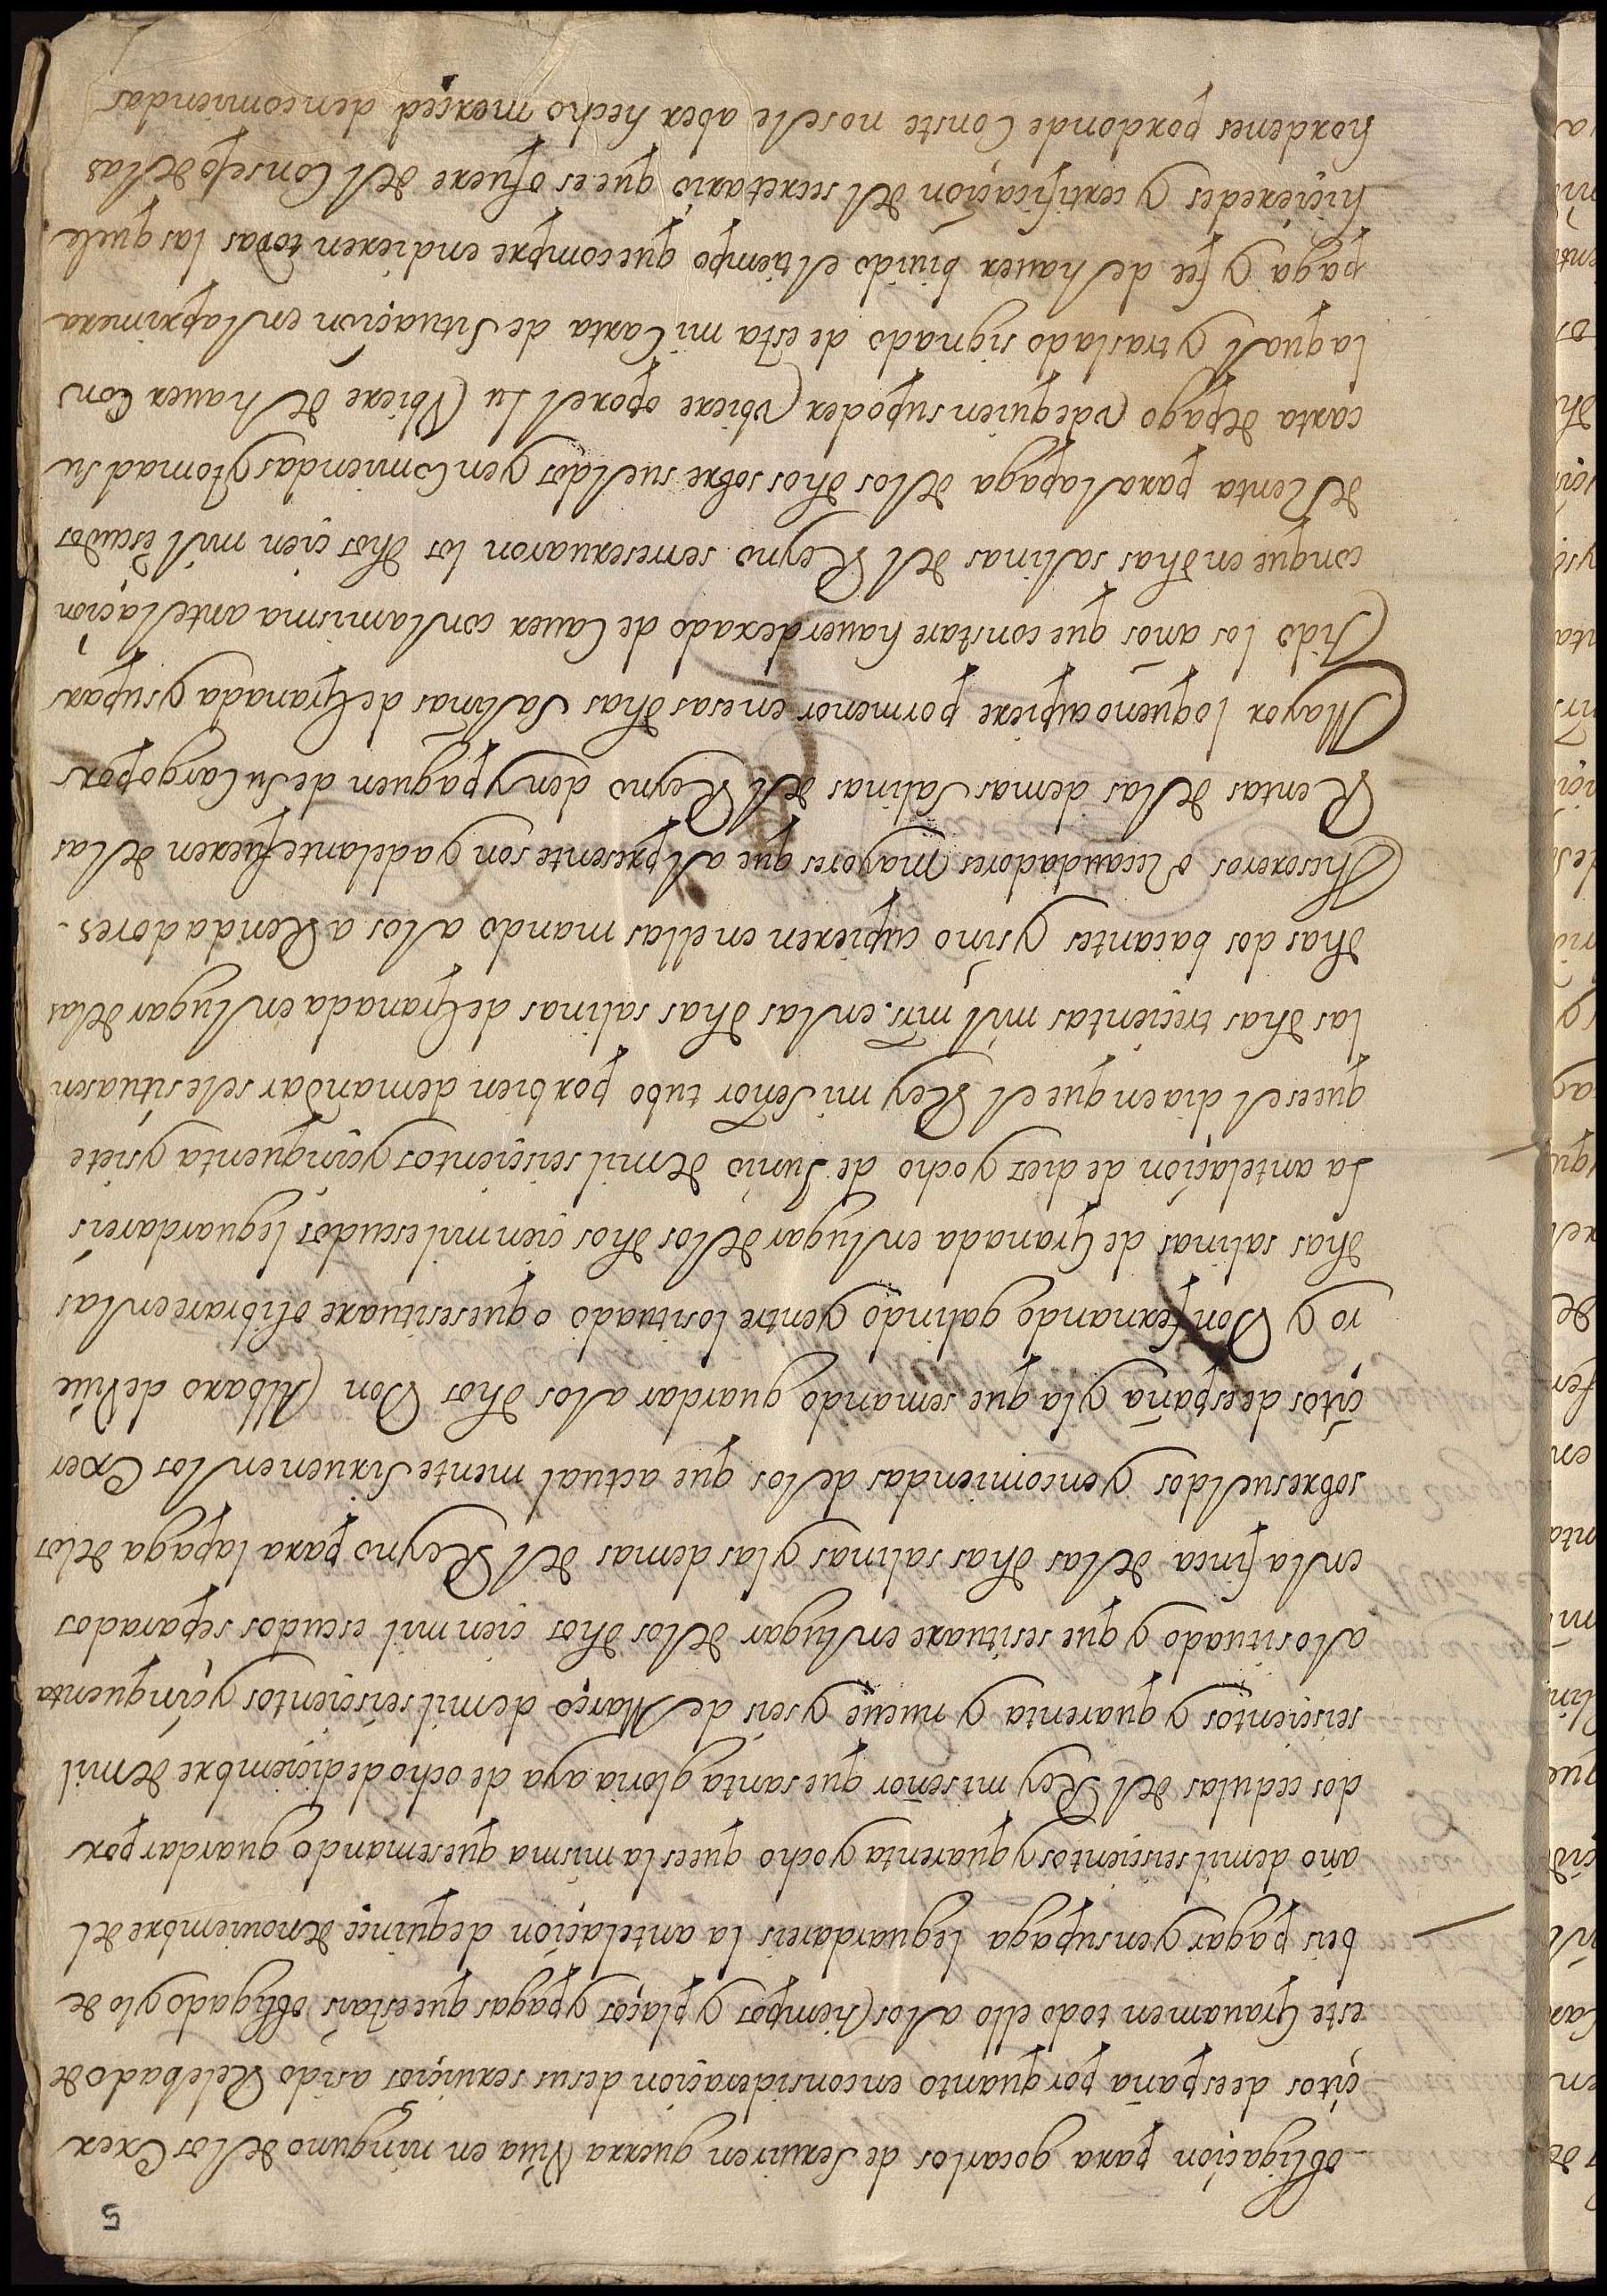 5
obligaçion para goçarlos de Seruir en guerra Viua en ninguno de los Exer
çitos de españa por quanto en consideraçion de sus seruiçios a sido Relebado de
este Grauamen todo ello a los tiempos y plaços y pagas que estais obligado y lo de
beis pagar y en su paga le guardareis la antelaçion de quinçe de nouiembre del
año de mil seisçientos y quarenta y ocho que es la misma que se mando guardar por
dos cedulas del Rey mi señor que santa gloria aya de ocho de diçiembre de mil
seisçientos y quarenta y nueue y seis de Março de mil seisçientos y çinquenta
a lo situado y que se situare en lugar de los dhos çien mil escudos separados
en la finca de las dhas salinas y las demas del Reyno para la paga de los
sobresueldos y encomiendas de los que actual mente Siruen en los Exer
çitos de españa y la que se mando guardar a los dhos Don Albaro de Viue
ro y Don fernando galindo y entre lo situado o que se situare o librare en las
dhas salinas de Granada en lugar de los dhos çien mil escudos le guardareis
La antelaçion de diez y ocho de Junio de mil seisçientos y çinquenta y siete
que es el dia en que el Rey mi Señor tubo por bien de mandar se le situasen
las dhas treçientas mil mrs. en las dhas salinas de Granada en lugar de las
dhas dos bacantes y si no cupieren en ellas mando a los a Rendadores.
Thesoreros o Recaudadores mayores que al presente son y adelante fueren de las
Rentas de las demas Salinas del Reyno den y paguen de su Cargo por
Mayor lo que no cupiere por menor en esas dhas Salinas de Granada y su par
tido los años que constare hauer dexado de Cauer con la misma antelaçion
con que en dhas salinas del Reyno se reseruaron los dhos çien mil escudos
de Renta para la paga de los dhos sobre sueldos y en Comiendas y tomad su
carta de pago o de quien su poder ubiere o por el lo Ubiere de hauer Con
la qual y traslado signado de esta mi Carta de Situaçion en la primera
paga y fee de hauer biuido el tiempo que compre endieren todas las que le
hiçieredes y certificaçion del secretario que es o fuere del Consejo de las
hordenes por donde Conste no sele aber hecho merçed de encomiendas